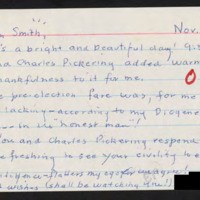 n Smith, Nov.
's a bright and beautiful day!
nd Charles Pickering added warm
hankfulness to it for me.
pre-election fare was, for me
lacking—according to my Diogene
in the "honest man"!
You and Charles Pickering respon
e refreshing to see your civility to e
my ego
wishes (shall be watching you!)